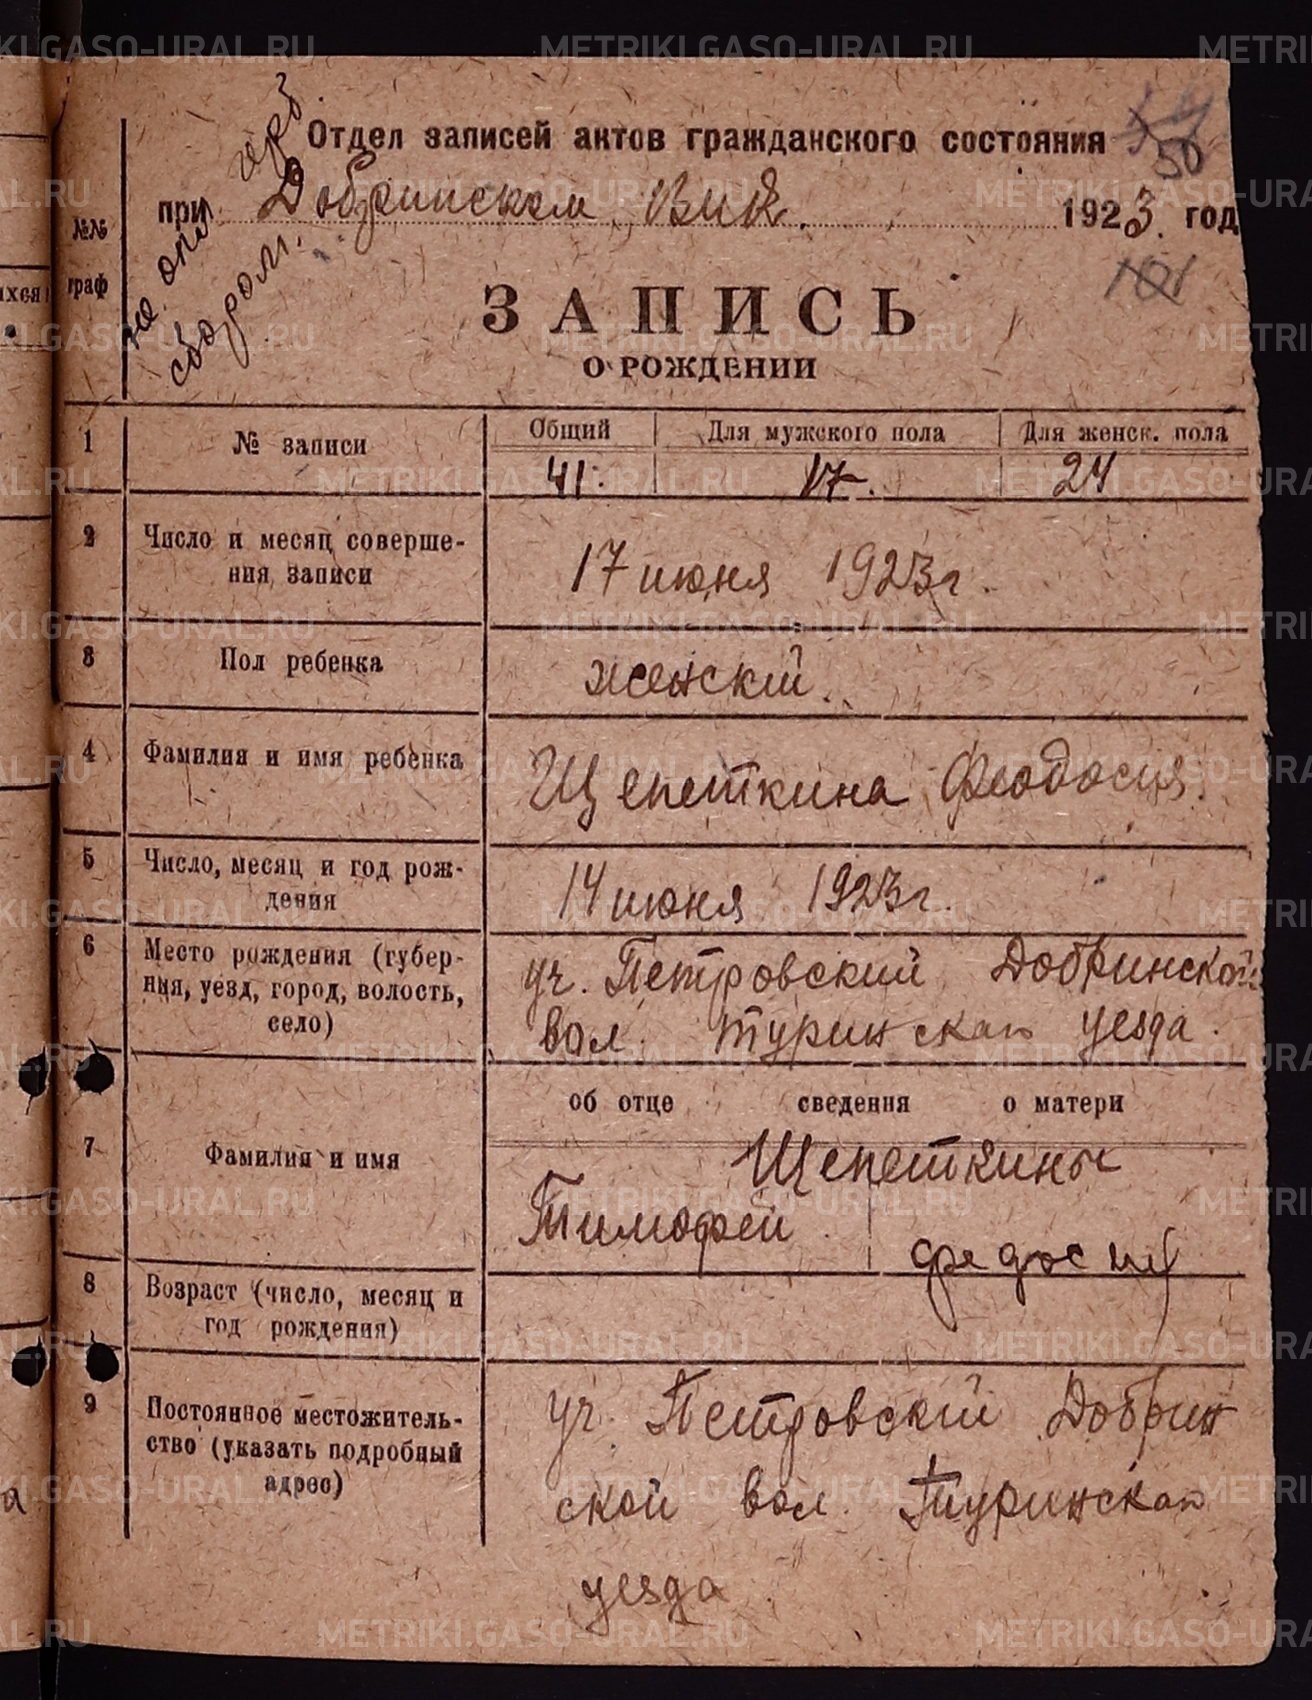 Отдел записей актов гражданского состояния
50
при Добринском ВИК. 1923. год
не опл
герб
сбором.
101
ЗАПИСЬ
О РОЖДЕНИИ
№№ граф
1 № записи Общий Для мужского пола Для женск. пола
41. 17. 24
2 Число и месяц соверше-
ния записи
17 июня 1923 г.
3 Пол ребенка женский.
4 Фамилия и имя ребенка Щепеткина Феодосия.
5 Число, месяц и год рож-
дения
14 июня 1923 г.
6 Место рождения (губер-
ния, уезд, город, волость,
село)
уч. Петровский Добринской
вол. Туринскаго уезда.
об отце сведения о матери
7 Фамилия и имя
Щепеткины
Тимофей
Федосия
8 Возраст (число, месяц и
год рождения)
9 Постоянное местожитель-
ство (указать подробный
адрес)
уч. Петровский Добрин
ской вол. Туринскаго
уезда
METRIKI.GASO-URAL.RU